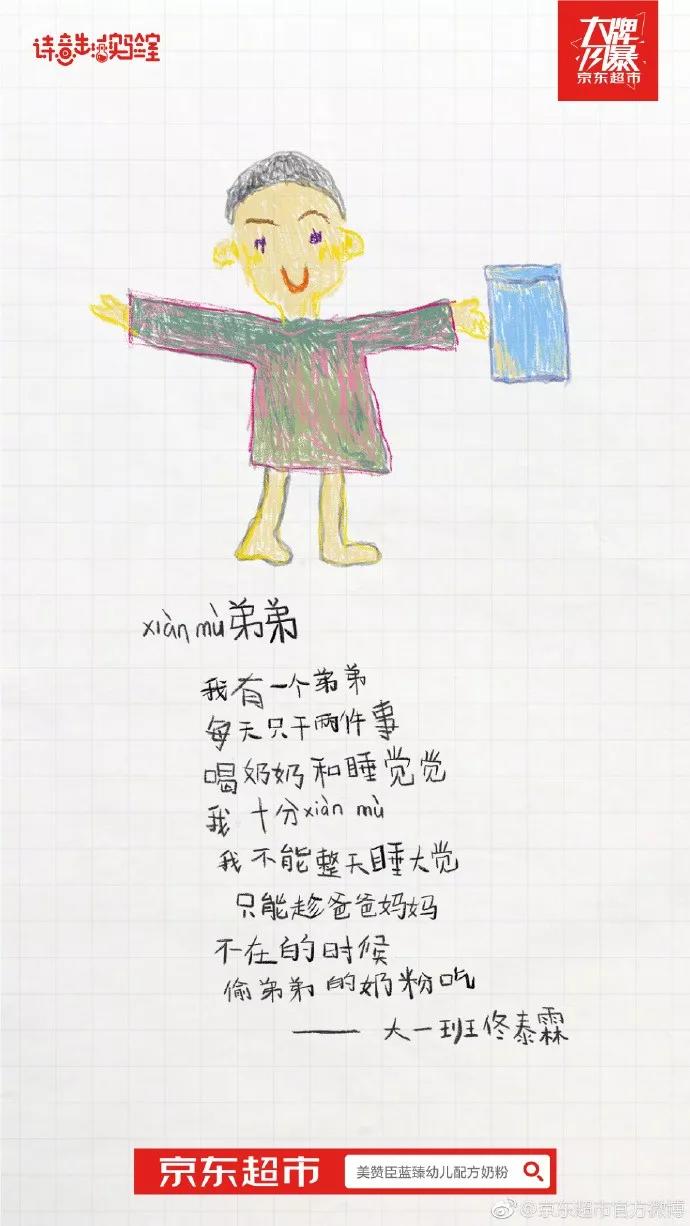 诗意生活实验室
大牌
风暴
京东超市
xiàn mù弟弟
我有一个弟弟
每天只干两件事
喝奶奶和睡觉觉
我十分xiàn mù
我不能整天睡大觉
只能趁爸爸妈妈
不在的时候
偷弟弟的奶粉吃
—— 大一班佟泰霖
京东超市 美赞臣蓝臻幼儿配方奶粉
@京东超市官方微博